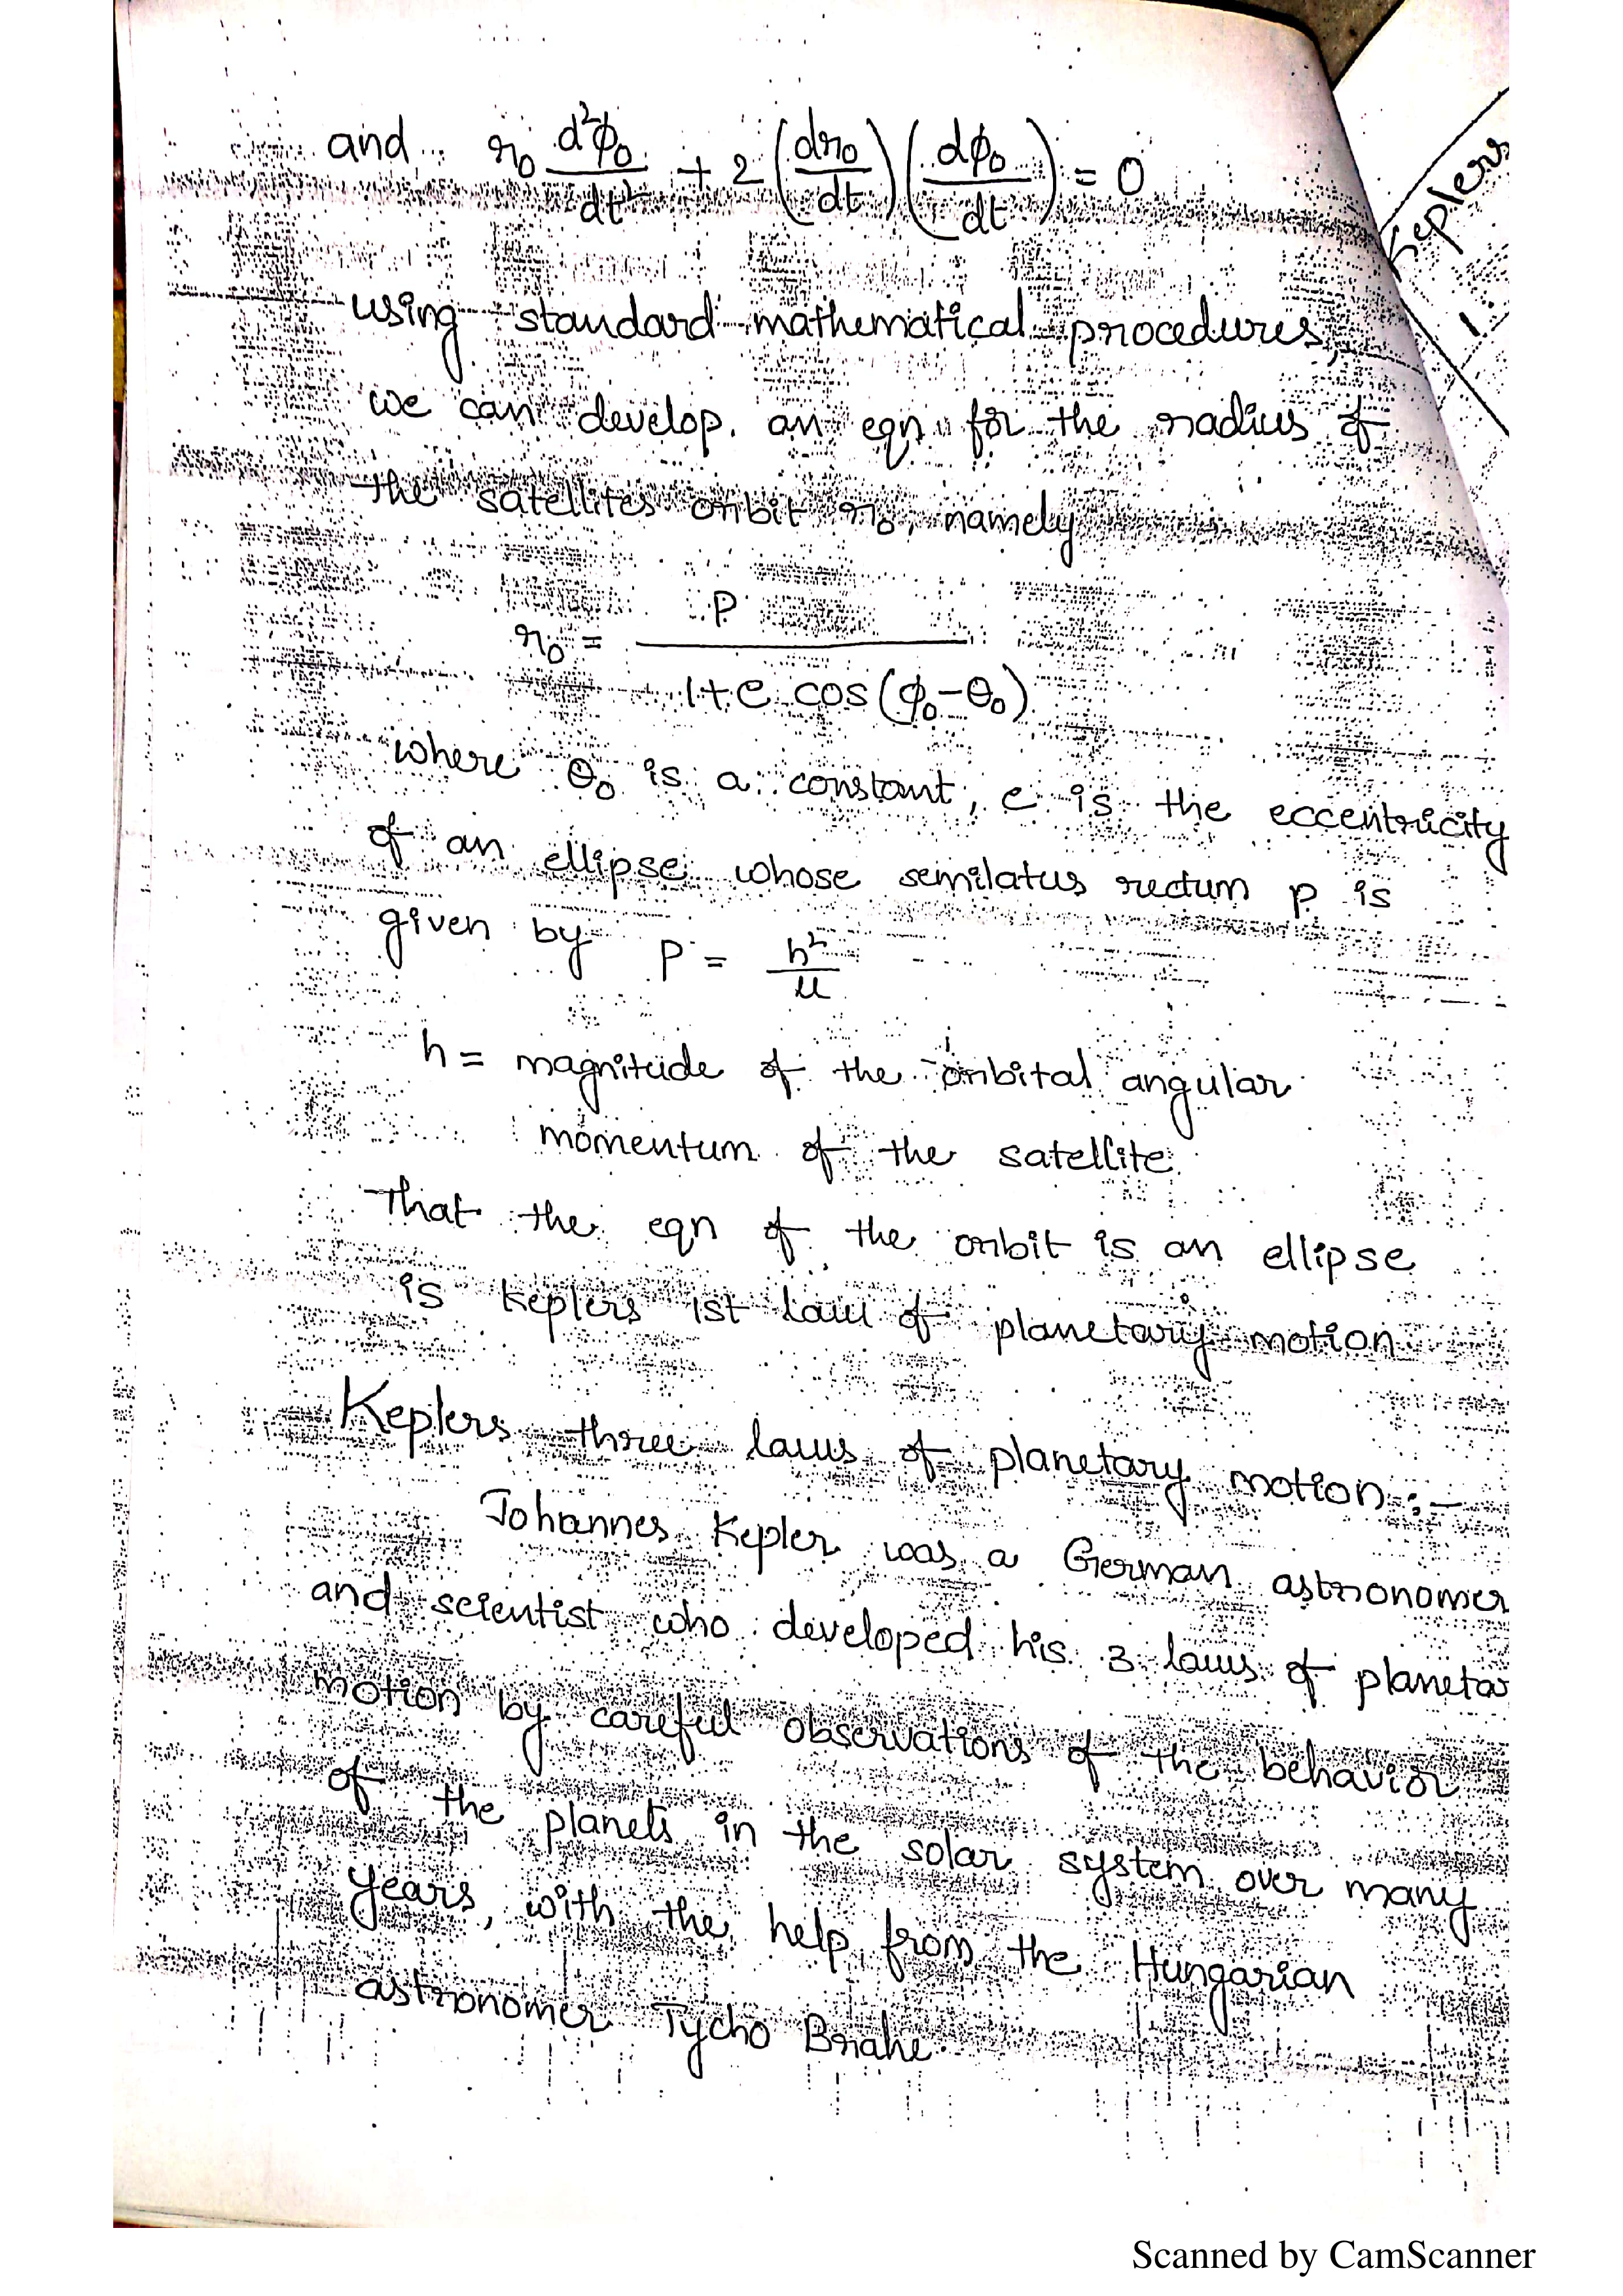 and r₀ d²φ₀/dt² + 2 (dr₀/dt) (dφ₀/dt) = 0
Keplers
1.
using standard mathematical procedures,
we can develop an eqn for the radius of
the satellites orbit r₀, namely
r₀ = P / 1+e cos(φ₀-θ₀)
where θ₀ is a constant, e is the eccentricity
of an ellipse whose semilatus rectum p is
given by P = h²/μ
h = magnitude of the orbital angular
momentum of the satellite.
That the eqn of the orbit is an ellipse
is keplers 1st law of planetary motion.
Keplers three laws of planetary motion :-
Johannes Kepler was a German astronomer
and scientist who developed his 3 laws of planetar
motion by careful observations of the behavior
of the planets in the solar system over many
years, with the help from the Hungarian
astronomer Tycho Brahe.
Scanned by CamScanner